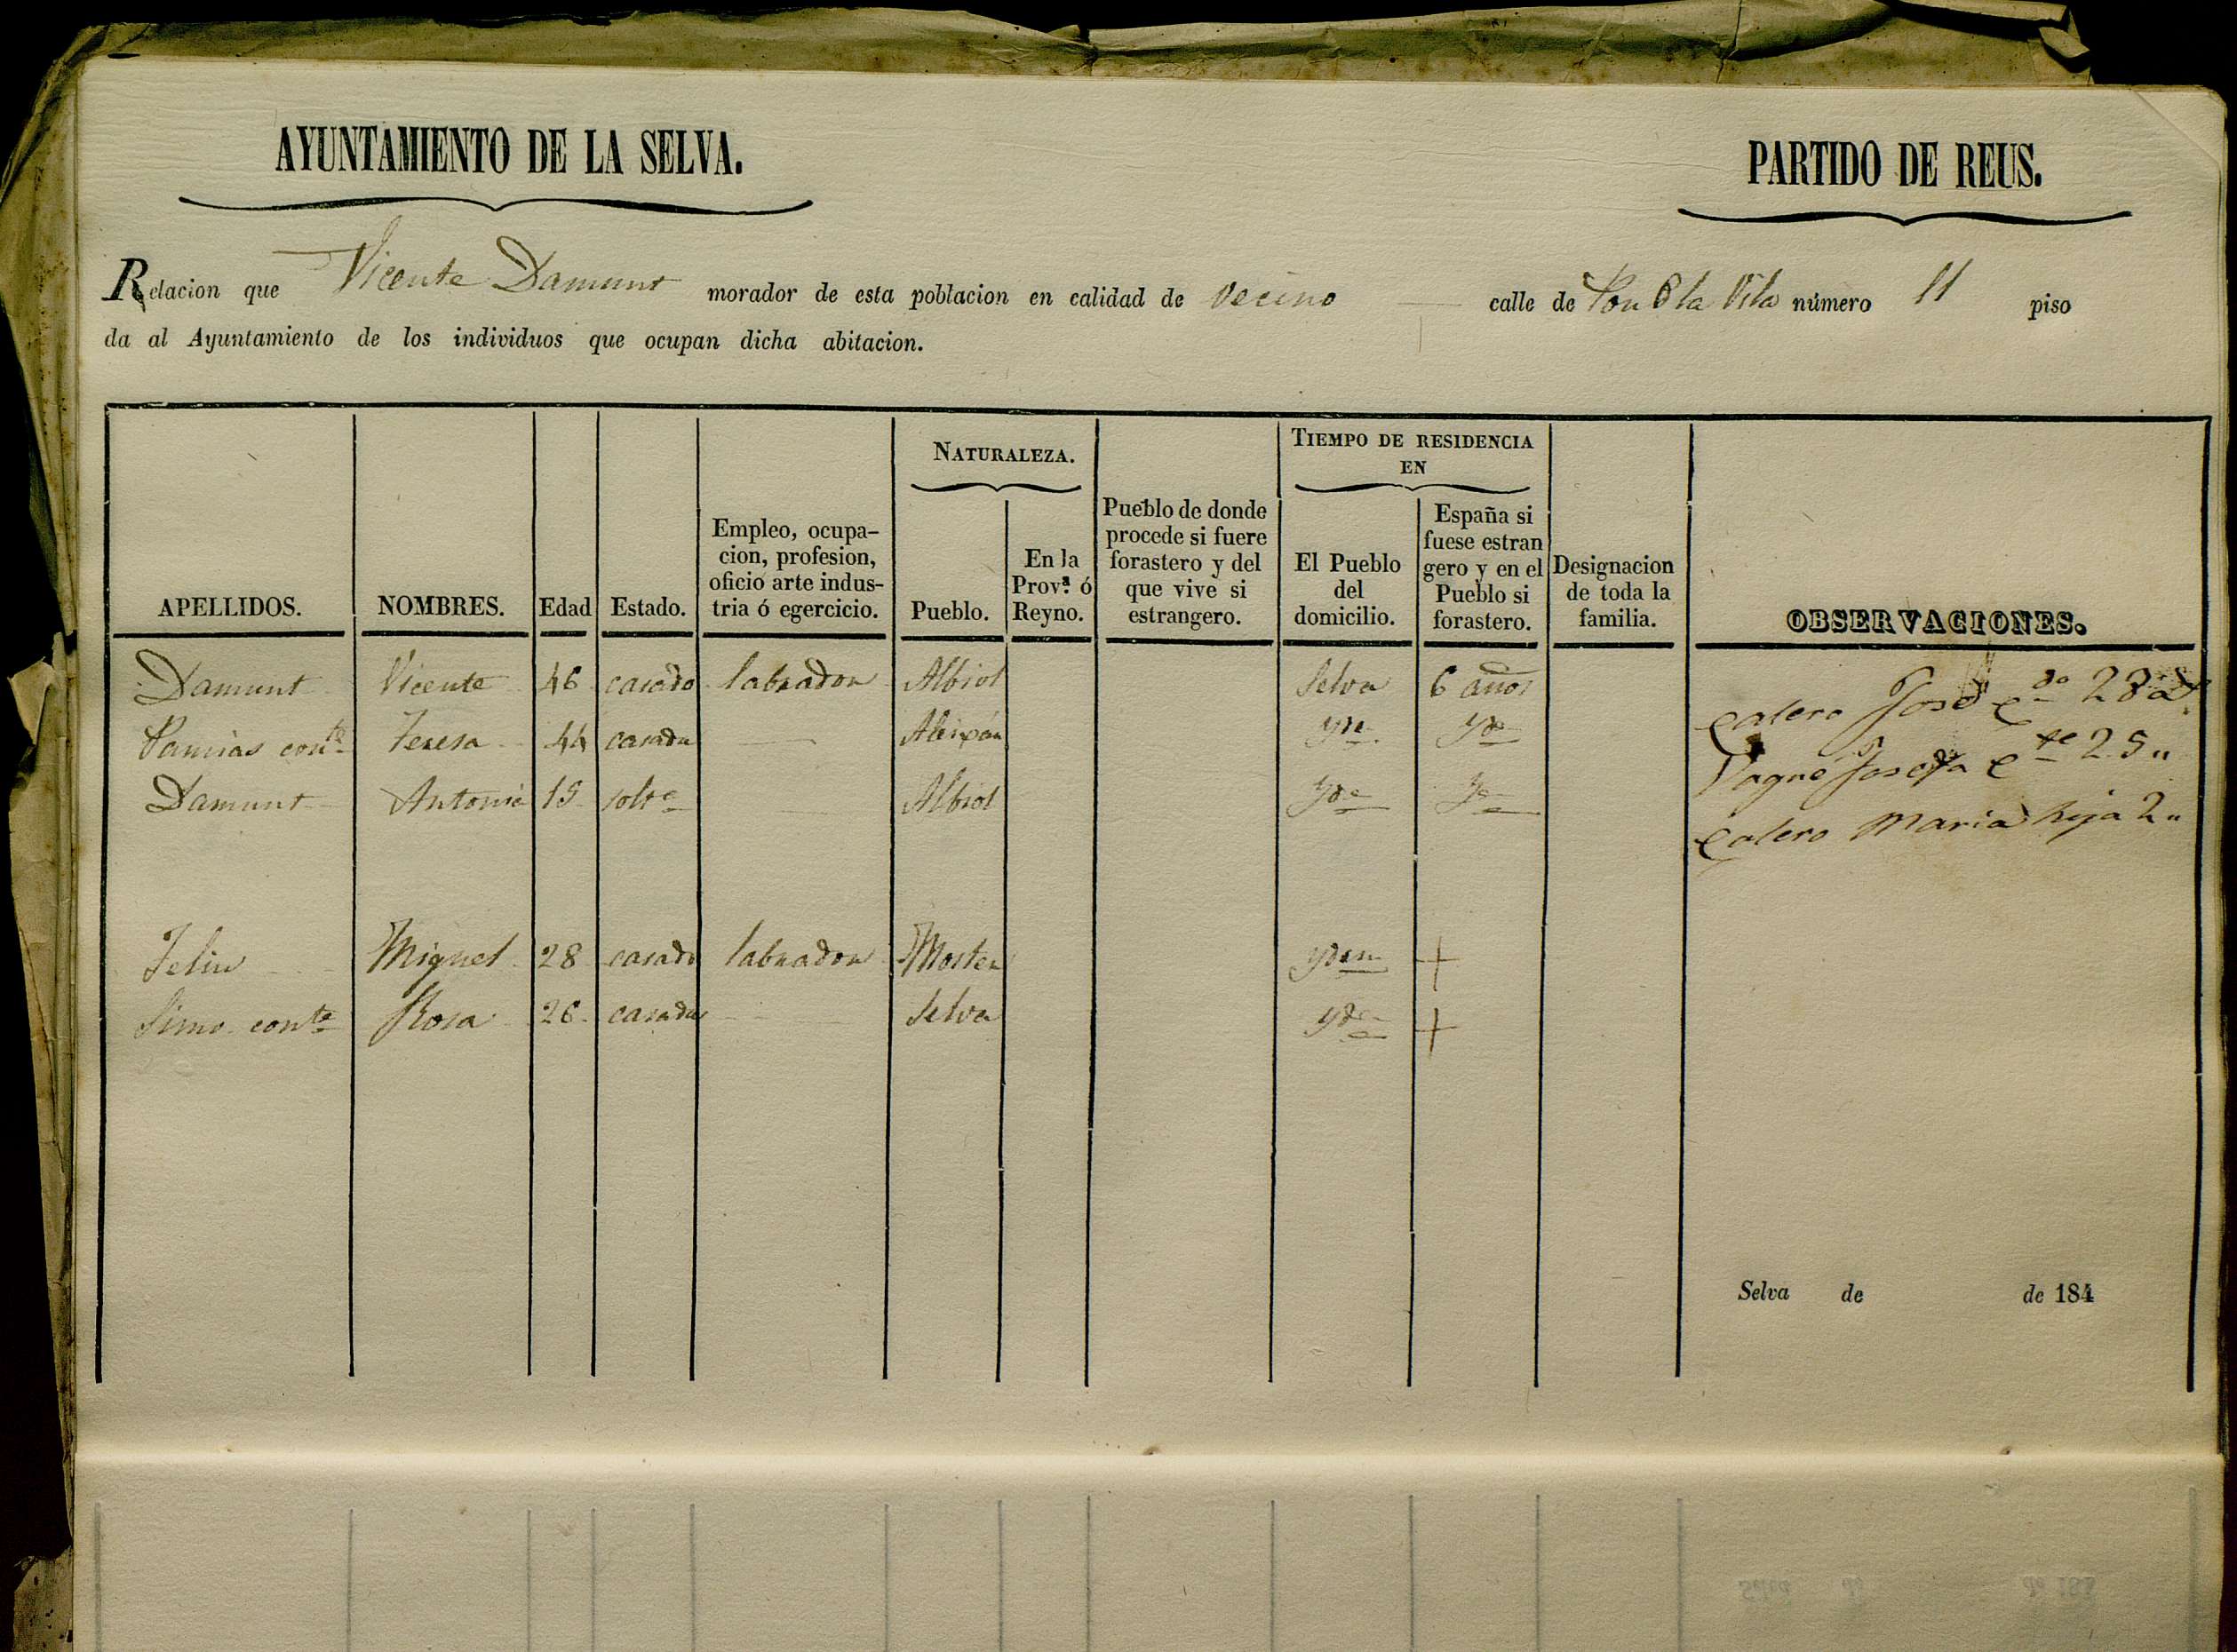 AYUNTAMIENTO DE LA SELVA.
PARTIDO DE REUS.
Relacion que Vicente Damunt morador de esta poblacion en calidad de vecino calle de la Vila número 11 piso
da al Ayuntamiento de los individuos que ocupan dicha abitacion.
NATURALEZA.
TIEMPO DE RESIDENCIA
EN
APELLIDOS.
NOMBRES.
Edad
Estado.
Empleo, ocupa-
cion, profesion,
oficio arte indus-
tria ó egercicio.
Pueblo.
En la
Prov.ª ó
Reyno.
Pueblo de donde
procede si fuere
forastero y del
que vive si
estrangero.
El Pueblo
del
domicilio.
España si
fuese estran
gero y en el
Pueblo si
forastero.
Designacion
de toda la
familia.
OBSERVACIONES.
Damunt Vicente 46 casado labrador Albiol Selva 6 años
Pamias cont.e Teresa 44 casada Yde Yd
Damunt Antonia 15 solt.a Albiol Yde Yd
Feliu Miguel 28 casado labrador Ydem +
Simo cont.e Rosa 26 casada Selva Yde +
Calero José 28 a.s
Vagué Josefa 25 "
Calero Maria hija 2 "
Selva de de 184